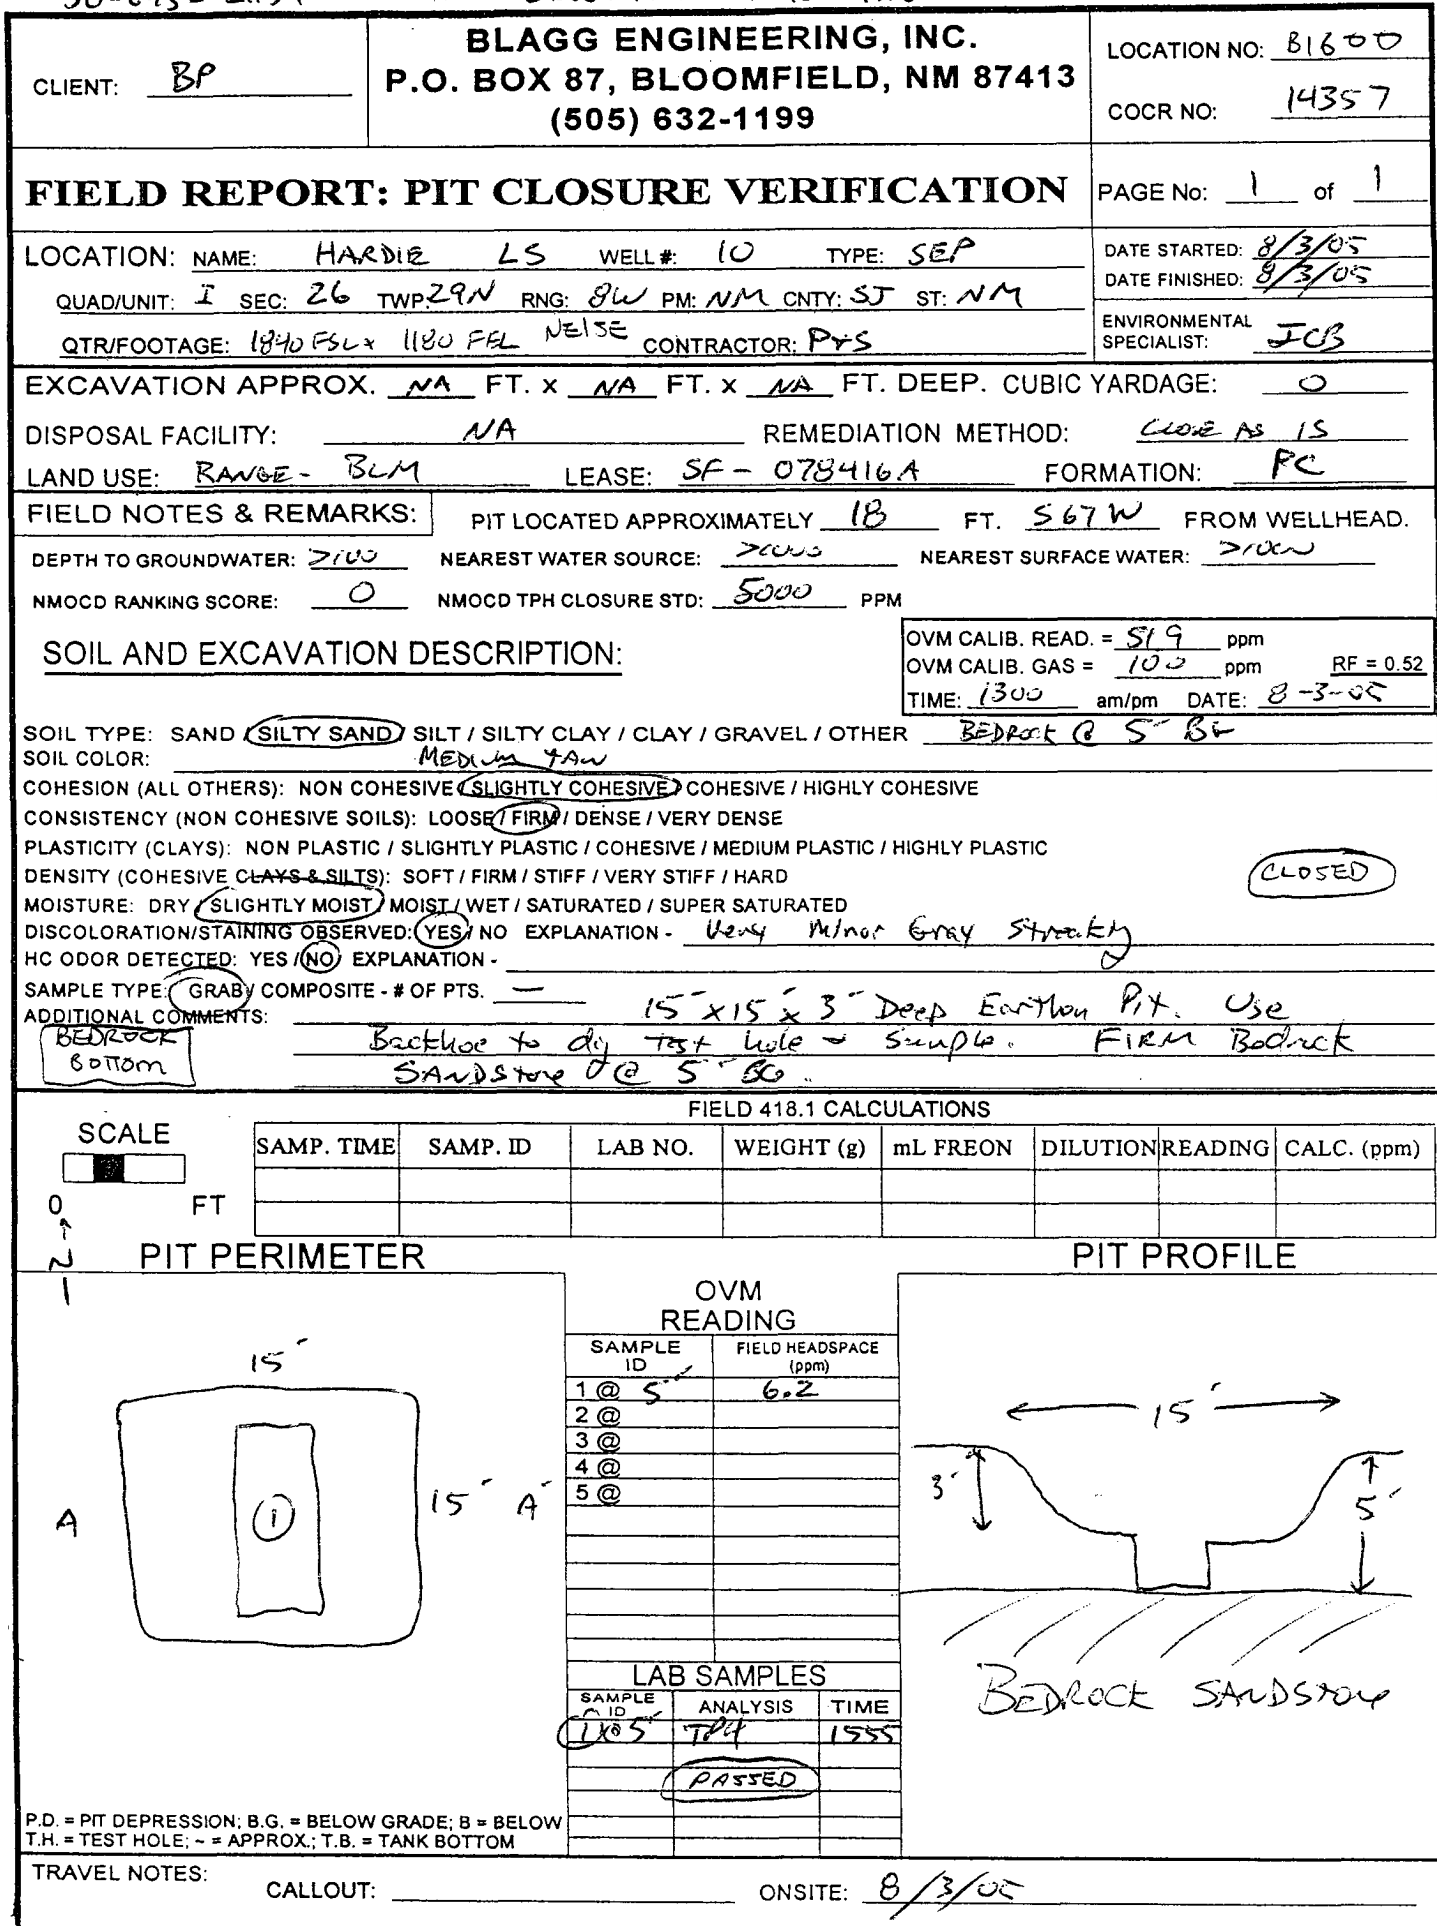 BLAGG ENGINEERING, INC.
P.O. BOX 87, BLOOMFIELD, NM 87413
(505) 632-1199
CLIENT: BP
LOCATION NO: B1600
COCR NO: 14357
FIELD REPORT: PIT CLOSURE VERIFICATION
PAGE No: 1 of 1
LOCATION: NAME: HARDIE LS WELL #: 10 TYPE: SEP
QUAD/UNIT: I SEC: 26 TWP: 29N RNG: 8W PM: NM CNTY: SJ ST: NM
QTR/FOOTAGE: 1840 FSL x 1180 FEL NE/SE CONTRACTOR: P+S
DATE STARTED: 8/3/05
DATE FINISHED: 8/3/05
ENVIRONMENTAL
SPECIALIST: JCB
EXCAVATION APPROX. NA FT. x NA FT. x NA FT. DEEP. CUBIC YARDAGE: 0
DISPOSAL FACILITY: NA REMEDIATION METHOD: CLOSE AS IS
LAND USE: RANGE - BLM LEASE: SF - 078416A FORMATION: PC
FIELD NOTES & REMARKS: PIT LOCATED APPROXIMATELY 18 FT. S67W FROM WELLHEAD.
DEPTH TO GROUNDWATER: >100 NEAREST WATER SOURCE: >1000 NEAREST SURFACE WATER: >1000
NMOCD RANKING SCORE: 0 NMOCD TPH CLOSURE STD: 5000 PPM
SOIL AND EXCAVATION DESCRIPTION:
OVM CALIB. READ. = 51.9 ppm
OVM CALIB. GAS = 100 ppm RF = 0.52
TIME: 1300 am/pm DATE: 8-3-05
SOIL TYPE: SAND / SILTY SAND / SILT / SILTY CLAY / CLAY / GRAVEL / OTHER BEDROCK @ 5' BG
SOIL COLOR: MEDIUM TAN
COHESION (ALL OTHERS): NON COHESIVE / SLIGHTLY COHESIVE / COHESIVE / HIGHLY COHESIVE
CONSISTENCY (NON COHESIVE SOILS): LOOSE / FIRM / DENSE / VERY DENSE
PLASTICITY (CLAYS): NON PLASTIC / SLIGHTLY PLASTIC / COHESIVE / MEDIUM PLASTIC / HIGHLY PLASTIC
DENSITY (COHESIVE CLAYS & SILTS): SOFT / FIRM / STIFF / VERY STIFF / HARD
CLOSED
MOISTURE: DRY / SLIGHTLY MOIST / MOIST / WET / SATURATED / SUPER SATURATED
DISCOLORATION/STAINING OBSERVED: YES / NO EXPLANATION - Very Minor Gray Streaking
HC ODOR DETECTED: YES / NO EXPLANATION -
SAMPLE TYPE: GRAB / COMPOSITE - # OF PTS. —
ADDITIONAL COMMENTS: 15' x 15' x 3' Deep Earthen Pit. Use
Backhoe to dig Test hole Sample. FIRM Bedrock
SANDSTONE @ 5' BG.
BEDROCK
BOTTOM
FIELD 418.1 CALCULATIONS
SCALE
0 FT
SAMP. TIME SAMP. ID LAB NO. WEIGHT (g) mL FREON DILUTION READING CALC. (ppm)
N
PIT PERIMETER
PIT PROFILE
OVM
READING
SAMPLE ID FIELD HEADSPACE (ppm)
1 @ 5' 6.2
2 @
3 @
4 @
5 @
15'
15'
A
A'
1
15'
3'
5'
BEDROCK SANDSTONE
LAB SAMPLES
SAMPLE ID ANALYSIS TIME
1 @ 5' TPH 1555
PASSED
P.D. = PIT DEPRESSION; B.G. = BELOW GRADE; B = BELOW
T.H. = TEST HOLE; ~ = APPROX.; T.B. = TANK BOTTOM
TRAVEL NOTES:
CALLOUT: ONSITE: 8/3/05